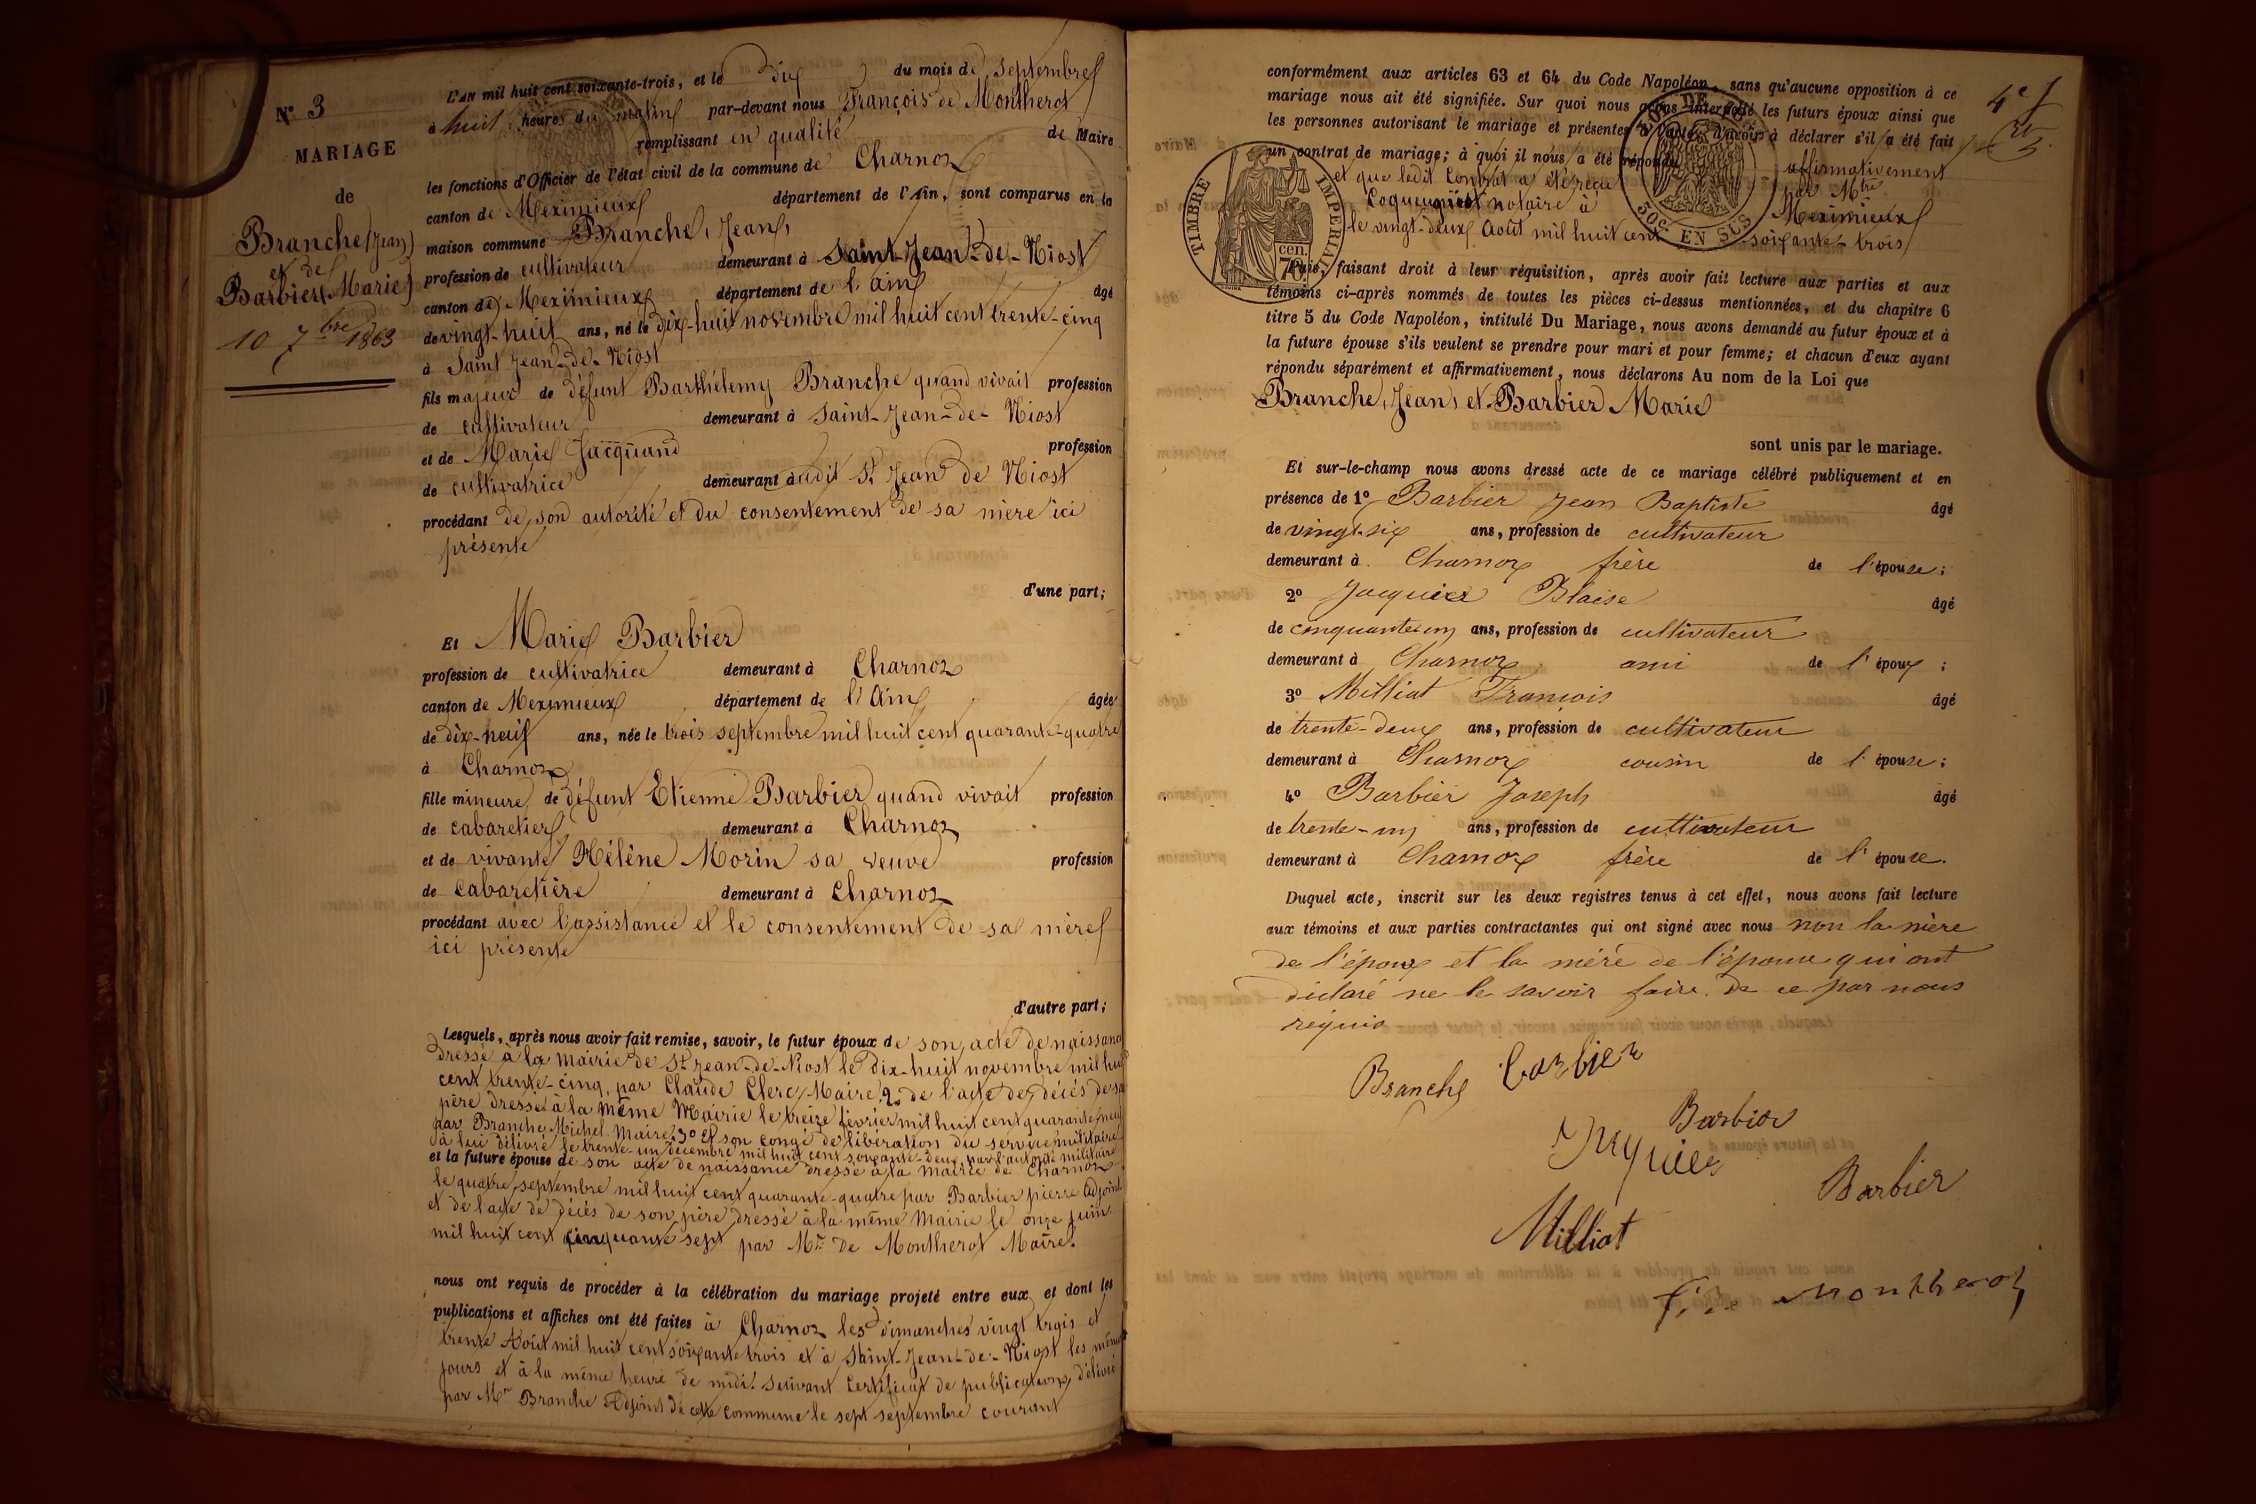 N° 3
MARIAGE
de
Branche (Jean)
et de
Barbier (Marie)
10 7bre 1863
L'AN mil huit cent soixante-trois, et le dix du mois de Septembre
à huit heures du matin par-devant nous François de Montherot
remplissant en qualité de Maire
les fonctions d'Officier de l'état civil de la commune de Charnoz
canton de Meximieux département de l'Ain, sont comparus en la
maison commune Branche, Jean,
profession de cultivateur demeurant à Saint-Jean-de-Niost
canton de Meximieux département de l'ain âgé
de vingt-huit ans, né le dix-huit novembre mil huit cent trente-cinq
à Saint Jean-de-Niost
fils majeur de défunt Barthélemy Branche quand vivait profession
de cultivateur demeurant à Saint-Jean-de-Niost
et de Marie Jacquand profession
de cultivatrice demeurant audit St Jean de Niost
procédant de son autorité et du consentement de sa mère ici
présente
d'une part;
Et Marie Barbier
profession de cultivatrice demeurant à Charnoz
canton de Meximieux département de l'Ain âgée
de dix-neuf ans, née le trois septembre mil huit cent quarante-quatre
à Charnoz
fille mineure de défunt Etienne Barbier quand vivait profession
de cabaretier demeurant à Charnoz
et de vivante Hélène Morin sa veuve profession
de Cabaretière demeurant à Charnoz
procédant avec l'assistance et le consentement de sa mère
ici présente
d'autre part;
Lesquels, après nous avoir fait remise, savoir, le futur époux de son acte de naissance
dressé à la mairie de St Jean-de-Niost le dix-huit novembre mil huit
cent trente-cinq, par Claude Clerc, Maire, 2° de l'acte de décés de sa
père dressé à la même Mairie le treize février mil huit cent quarante neuf
par Branche Michel Maire, 3° Et son congé de libération du service militaire
à lui délivré le trente-un décembre mil huit cent soixante-deux par l'autorité militaire
et la future épouse de son acte de naissance dressé à la mairie de Charnoz
le quatre septembre mil huit cent quarante-quatre par Barbier pierre adjoint
et de l'acte de décés de son père dressé à la même Mairie le onze juin
mil huit cent cinquante sept par Mr De Montherot Maire.
nous ont requis de procéder à la célébration du mariage projeté entre eux et dont les
publications et affiches ont été faites à Charnoz les dimanches vingt trois et
trente Août mil huit cent soixante trois et à Saint-Jean-de-Niost les même
jours et à la même heure de midi. Suivant Certificat de publications délivré
par Mr Branche Adjoint de cette commune le sept septembre courant
conformément aux articles 63 et 64 du Code Napoléon, sans qu'aucune opposition à ce
mariage nous ait été signifiée. Sur quoi nous avons interpellé les futurs époux ainsi que
les personnes autorisant le mariage et présentes à l'acte, d'avoir à déclarer s'il a été fait
un contrat de mariage; à quoi il nous a été répondu affirmativement
et que ledit Contrat a été reçu par Mtre
Coquemnot notaire à Meximieux
le vingt-deux Août mil huit cent soixante-trois
4e f
TIMBRE IMPERIAL
cen. 70
50c. EN SUS
Puis, faisant droit à leur réquisition, après avoir fait lecture aux parties et aux
témoins ci-après nommés de toutes les pièces ci-dessus mentionnées, et du chapitre 6
titre 5 du Code Napoléon, intitulé Du Mariage, nous avons demandé au futur époux et à
la future épouse s'ils veulent se prendre pour mari et pour femme; et chacun d'eux ayant
répondu séparément et affirmativement, nous déclarons Au nom de la Loi que
Branche, Jean, et Barbier Marie
sont unis par le mariage.
Et sur-le-champ nous avons dressé acte de ce mariage célébré publiquement et en
présence de 1° Barbier Jean Baptiste âgé
de vingt-six ans, profession de cultivateur
demeurant à Charnoz frère de l'épouse;
2° Jacquier Blaise âgé
de cinquante-un ans, profession de cultivateur
demeurant à Charnoz ami de l'époux;
3° Milliat François âgé
de trente-deux ans, profession de cultivateur
demeurant à Charnoz cousin de l'épouse;
4° Barbier Joseph âgé
de trente-un ans, profession de cultivateur
demeurant à Charnoz frère de l'épouse.
Duquel acte, inscrit sur les deux registres tenus à cet effet, nous avons fait lecture
aux témoins et aux parties contractantes qui ont signé avec nous non la mère
de l'époux et la mère de l'épouse qui ont
déclaré ne le savoir faire. De ce par nous
requis
Branche Barbier
Barbier
Jacquier
Barbier
Milliat
F. de Montherot